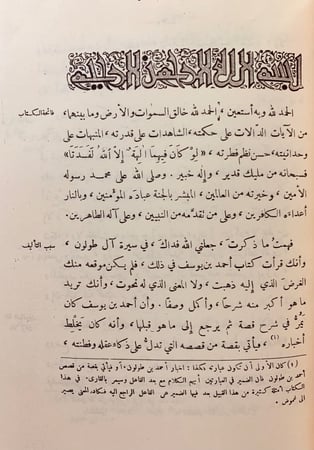 بسم الله الرحمن الرحيم
الحمد لله وبه أستعين، الحمد لله خالق السموات والأرض وما بينهما،
فاتحة الكتاب
من الآيات الدالات على حكمته، الشاهدات على قدرته، المنبهات على
وحدانيته، حسن نظم فطرته، «لو كان فيهما آلهة إلا الله لفسدتا»
فسبحانه من مليك قدير، وإله خبير. وصلى الله على محمد رسوله
الأمين، وخيرته من العالمين، المبشر بالجنة عباده المؤمنين، وبالنار
أعداءه الكافرين، وعلى من تقدمه من النبيين، وعلى آله الطاهرين.
فهمت ما ذكرت، جعلني الله فداك، في سيرة آل طولون،
سبب التأليف
وأنك قرأت كتاب أحمد بن يوسف في ذلك، فلم يكن موقعه منك
الغرض الذي إليه ذهبت، ولا المعنى الذي له نحوت، وأنك تريد
ما هو أكبر منه شرحا، وأكمل وصفا. وأن أحمد بن يوسف كان
يمر في شرح قصة ثم يرجع إلى ما هو قبلها، وأنه كان يخلط
أخباره (١)، فيأتي بقصة من قصصه التي تدل على ذكاء عقله وفطنته،
(١) كان الأولى أن تكون عبارته هكذا: أخبار أحمد بن طولون، أو فيأتي بقصة من قصص
أحمد بن طولون فان الضمير في العبارتين أبهم الكلام مع بعد الفاعل وسيمر بالقارىء في هذا
الكتاب أمثلة كثيرة من هذا القبيل بعد فيها الضمير عن الفاعل الراجع إليه فكاد المعنى يصير
الى غموض.